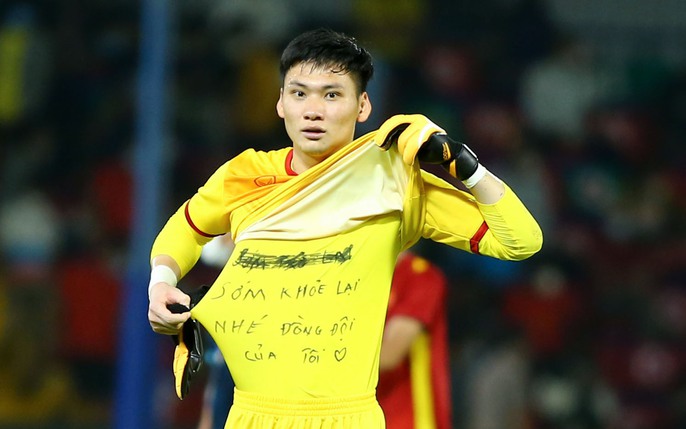 SỚM KHỎE LẠI
NHÉ ĐỒNG ĐỘI
CỦA TÔI ♡